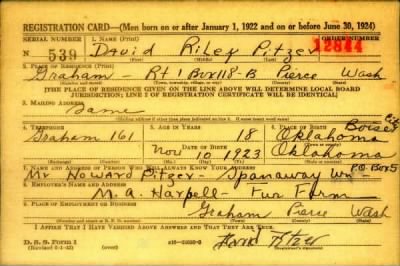 REGISTRATION CARD—(Men born on or after January 1, 1922 and on or before June 30, 1924)
SERIAL NUMBER 1. NAME (Print) ORDER NUMBER
N 539 David Riley Pitzer 12844
(First) (Middle) (Last)
2. PLACE OF RESIDENCE (Print)
Graham - Rt 1 Box 118-B Pierce Wash
[THE PLACE OF RESIDENCE GIVEN ON THE LINE ABOVE WILL DETERMINE LOCAL BOARD
JURISDICTION; LINE 2 OF REGISTRATION CERTIFICATE WILL BE IDENTICAL]
3. MAILING ADDRESS
Same
4. TELEPHONE 5. AGE IN YEARS 6. PLACE OF BIRTH
Graham 161 18 Oklahoma
DATE OF BIRTH
Nov 10 1923 Oklahoma
7. NAME AND ADDRESS OF PERSON WHO WILL ALWAYS KNOW YOUR ADDRESS
P.O. Box 5
Mr. Howard Pitzer - Spanaway Wn
8. EMPLOYER'S NAME AND ADDRESS
M. A. Harpell Fur Farm
9. PLACE OF EMPLOYMENT OR BUSINESS
Graham Pierce Wash
I AFFIRM THAT I HAVE VERIFIED ABOVE ANSWERS AND THAT THEY ARE TRUE.
D. S. S. Form 1